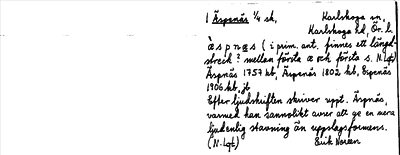 1 Äspenäs 1/4 sk, Karlskoga sn,
Karlskoga hd, Ör. l.
æspnæs (i prim. ant. finnes ett längd-
streck? mellan första æ och första s. N.Lgt)
Äspnäs 1757 kb, Äspenäs 1802 kb, Espenäs
1906 kb, jb
Efter ljudskriften skriver uppt. Äspnäs,
varmed han sannolikt avser att ge en mera
ljudenlig stavning än uppslagsformens.
(N.Lgt) Erik Noreen